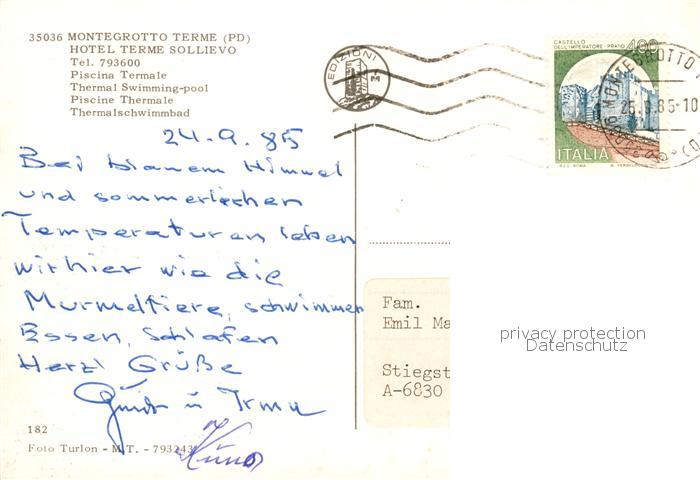 35036 MONTEGROTTO TERME (PD)
HOTEL TERME SOLLIEVO
Tel. 793600
Piscina Termale
Thermal Swimming-pool
Piscine Thermale
Thermalschwimmbad
EDIZIONI
CASTELLO
DELL'IMPERATORE - PRATO
400
ITALIA
MONTEGROTTO
24.9.85
Bei blauem Himmel
und sommerlichen
Temperaturen leben
wir hier wie die
Murmeltiere, schwimmen
Essen, Schlafen
Herzl Grüße
Guido u Irma
Fam.
Emil Ma
Stiegst
A-6830
privacy protection
Datenschutz
182
Foto Turlon - M.T. - 793243